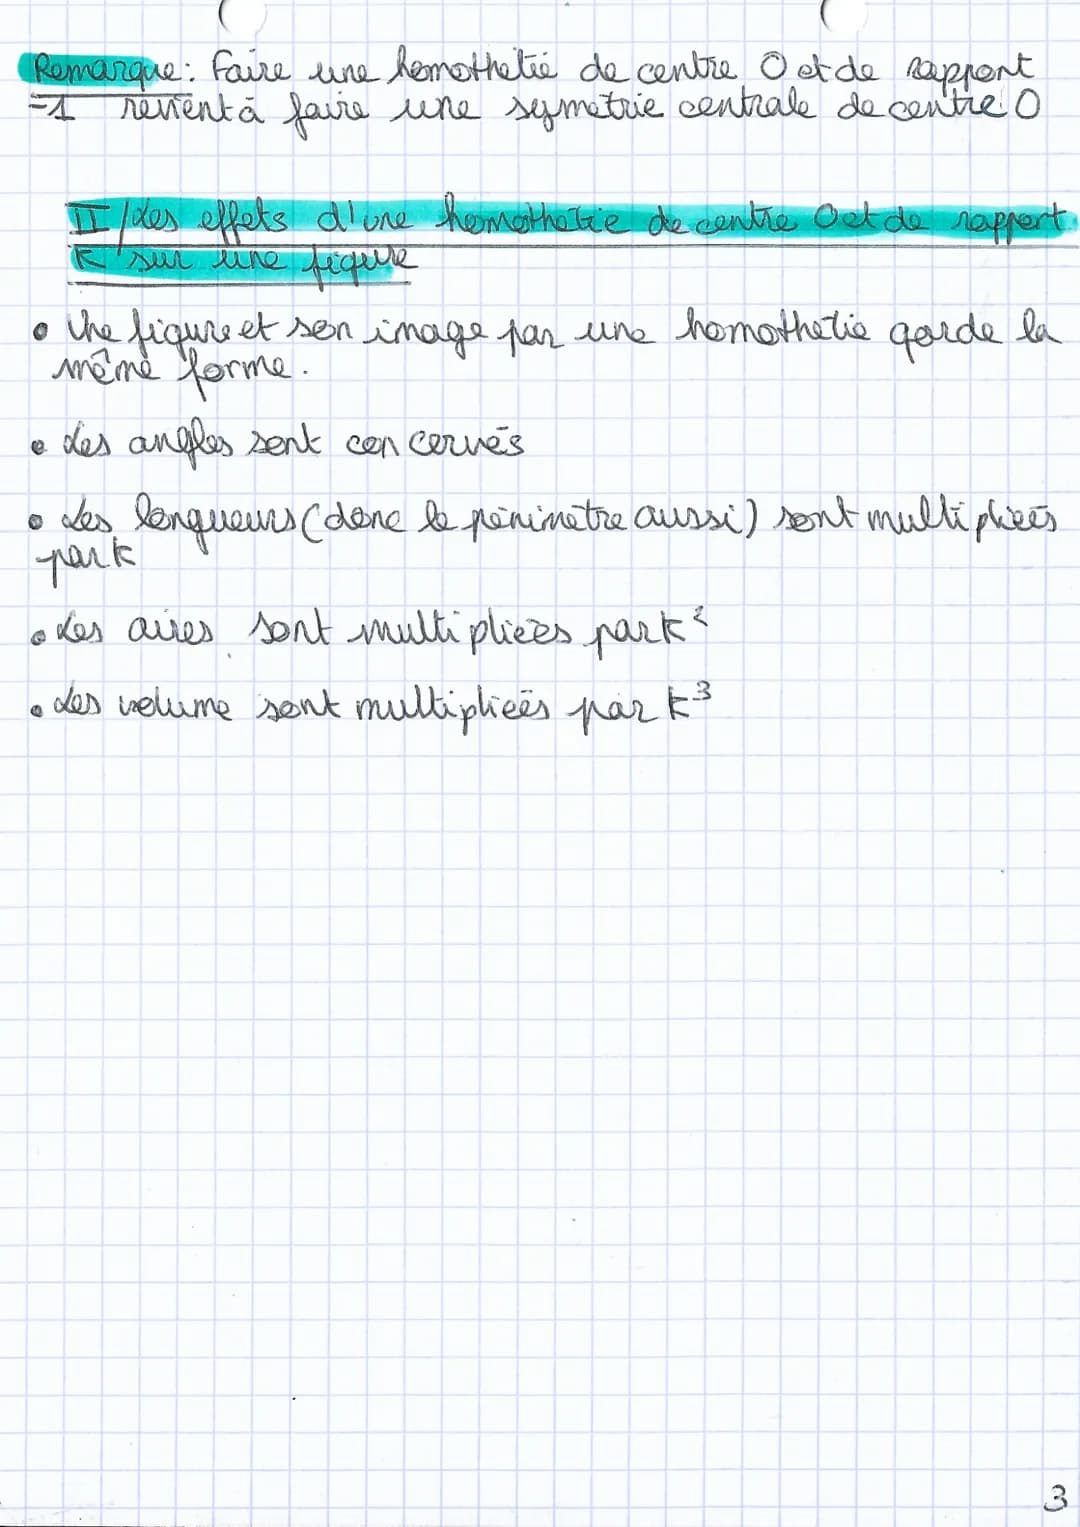 Remarque: Faire une homothétie de centre O et de rapport
-1 revient à faire une symétrie centrale de centre O
II/Les effets d'une homothétie de centre O et de rapport
K sur une figure
• Une figure et son image par une homothétie garde la
même forme.
• Les angles sont concervés
• Les longueurs (donc le périmètre aussi) sont multipliées
par k
• Les aires sont multipliées par k²
• Les volume sont multipliées par k³
3